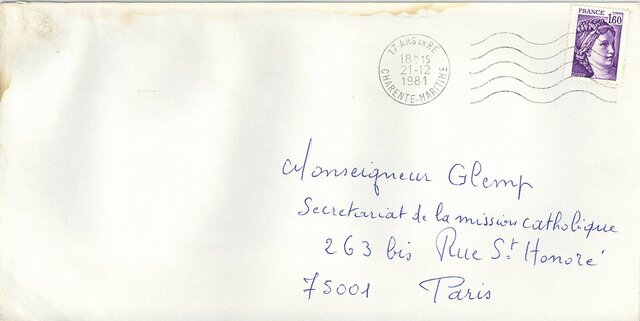 FRANCE
1,60
17 ARS EN RE
18 H 15
21-12
1981
CHARENTE-MARITIME
Monseigneur Glemp
Secretariat de la mission catholique
263 bis Rue St Honoré
75001 Paris